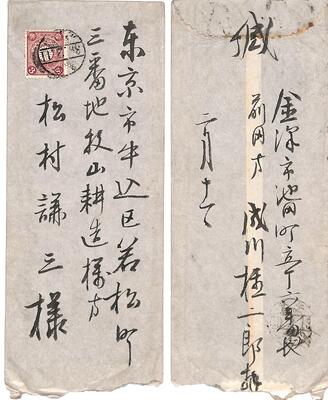 东京市牛込区若松町
三番地牧山耕造様方
松村謙三様
緘
金沢市池田町立丁六番地
前田方 成川桂二郎
二月十一